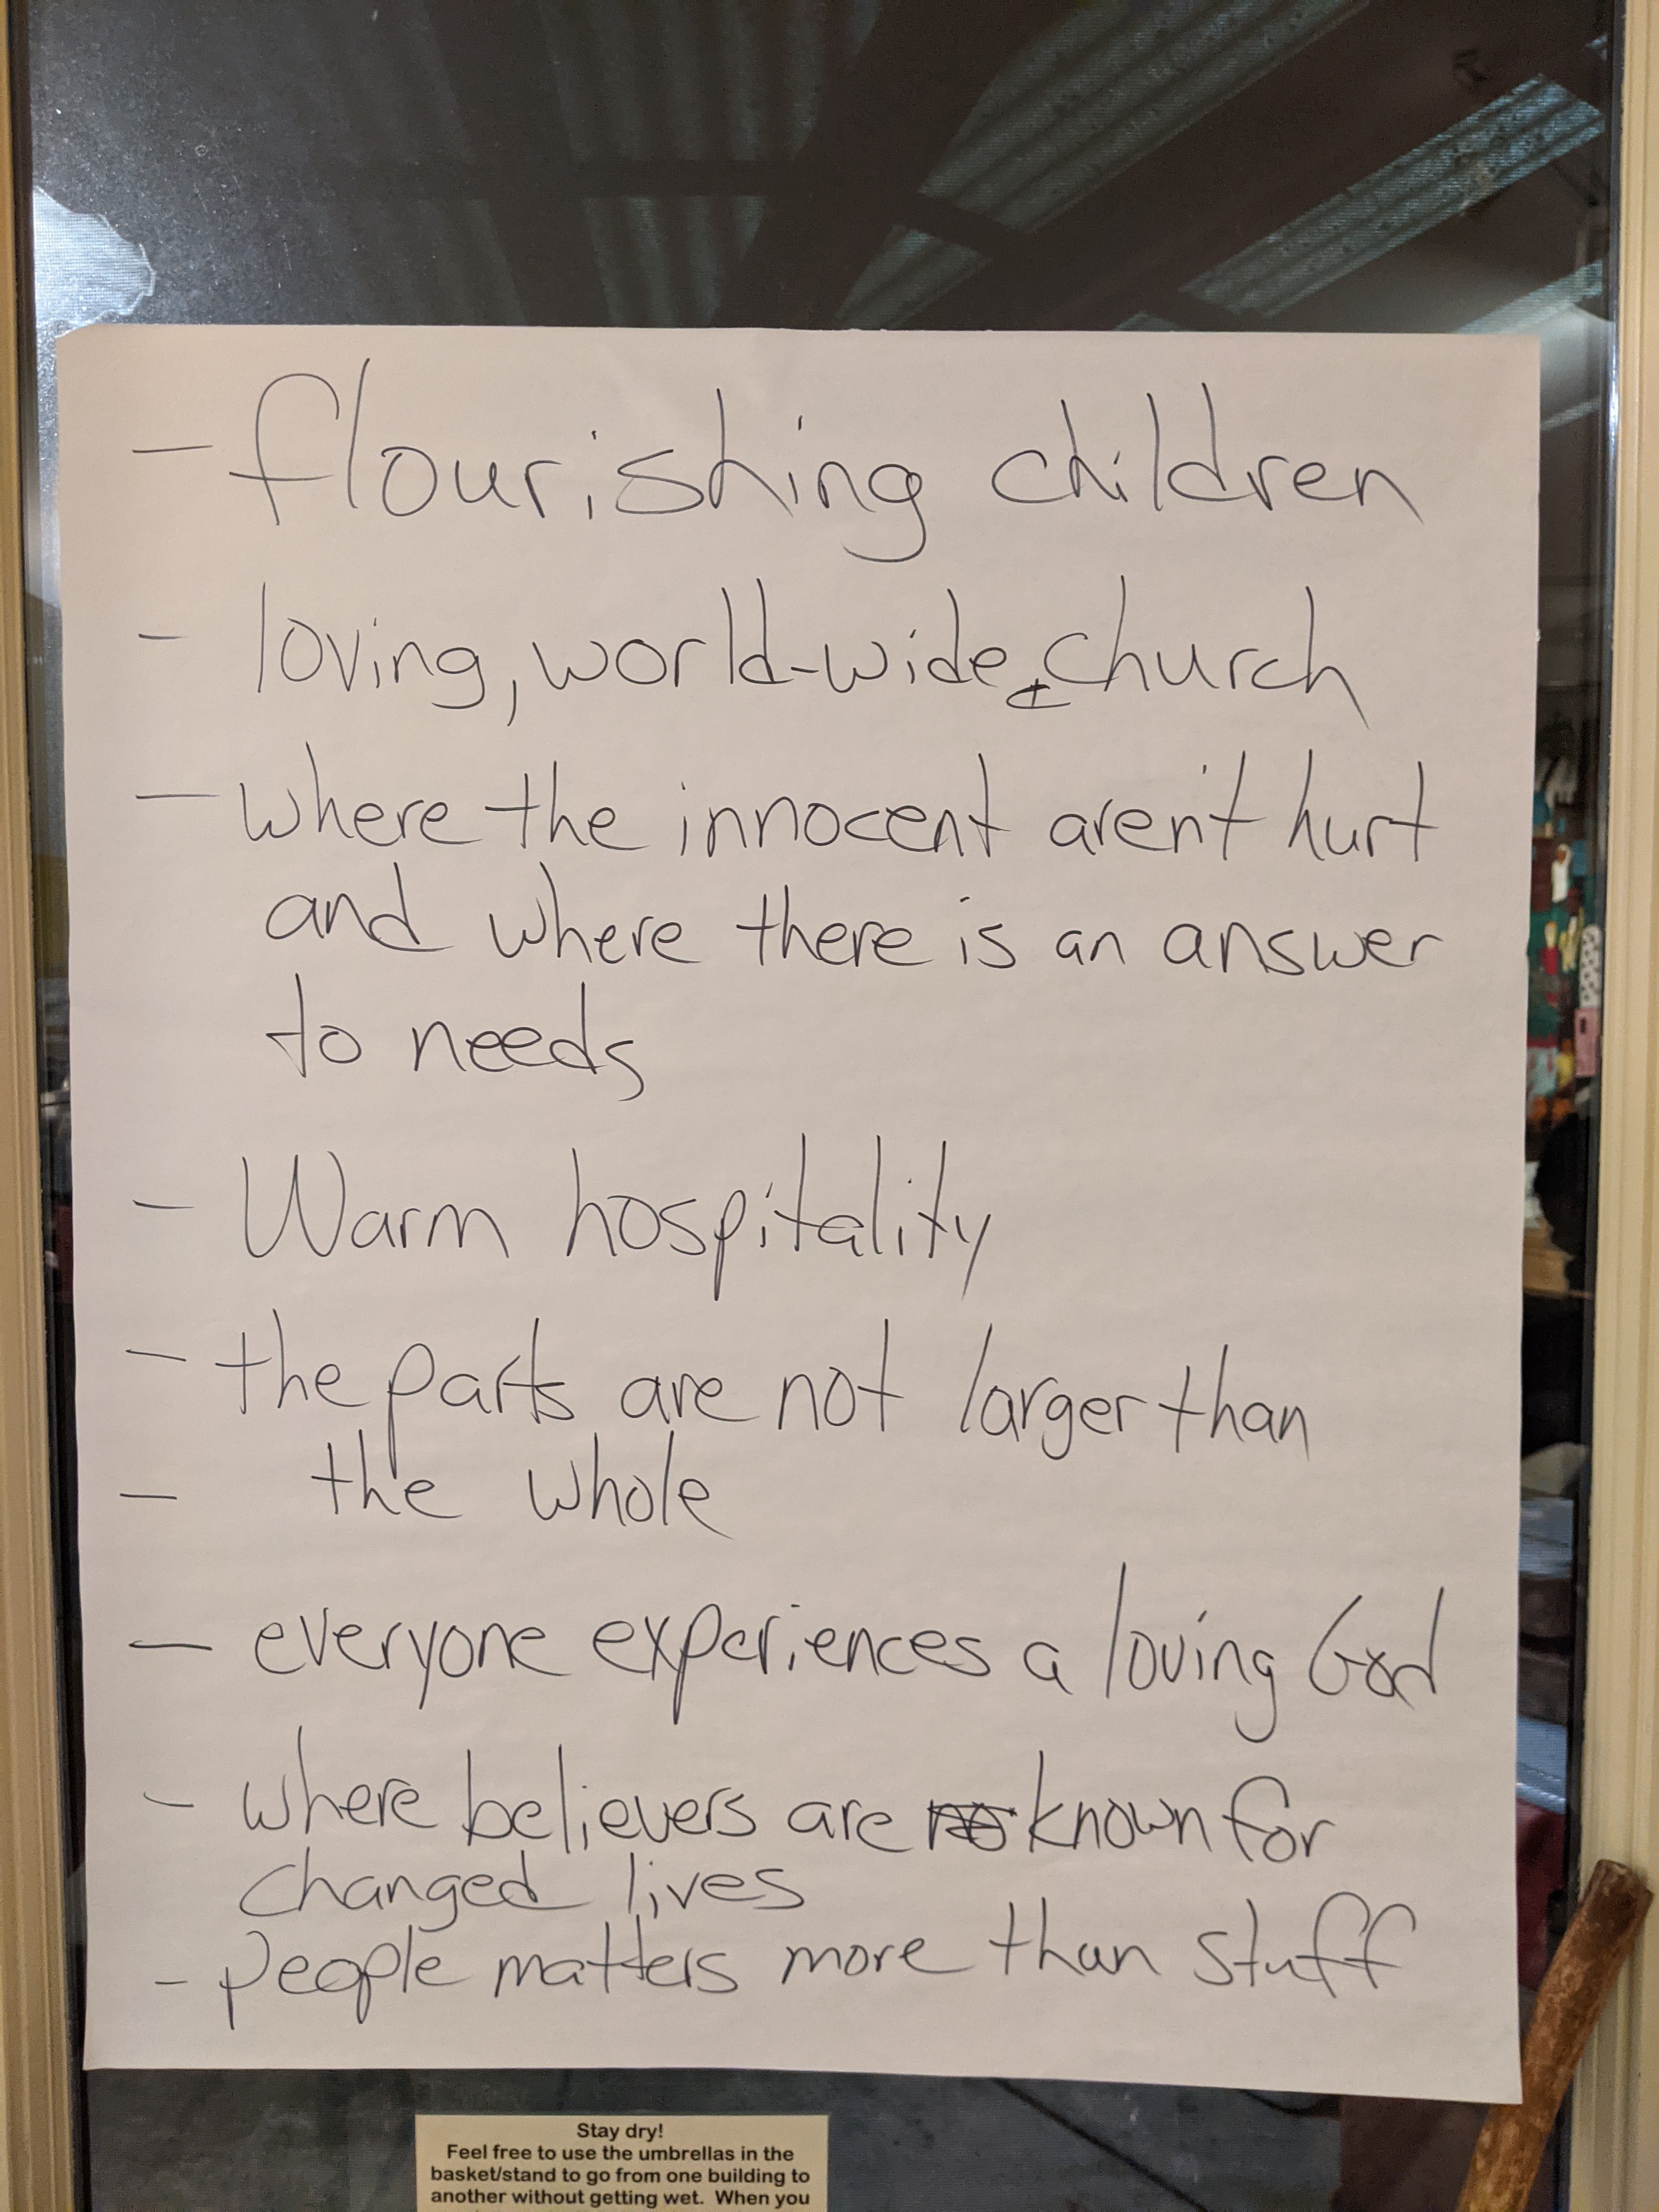 - flourishing children
- loving, world-wide ± church
- where the innocent aren't hurt
and where there is an answer
to needs
- Warm hospitality
- the parts are not larger than
- the whole
- everyone experiences a loving God
- where believers are known for
changed lives
- people matters more than stuff
Stay dry!
Feel free to use the umbrellas in the
basket/stand to go from one building to
another without getting wet. When you